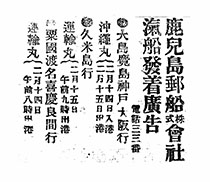 鹿兒島郵船株式會社
滊船發着廣告
電話三三番
●大島麑島神戸大阪行
沖繩丸 二月十四日入港
二月十五日出港
●久米島行
運輸丸 二月十五日
午前九時出港
●粟國渡名喜慶良間行
運輸丸 二月十四日
午前八時出港